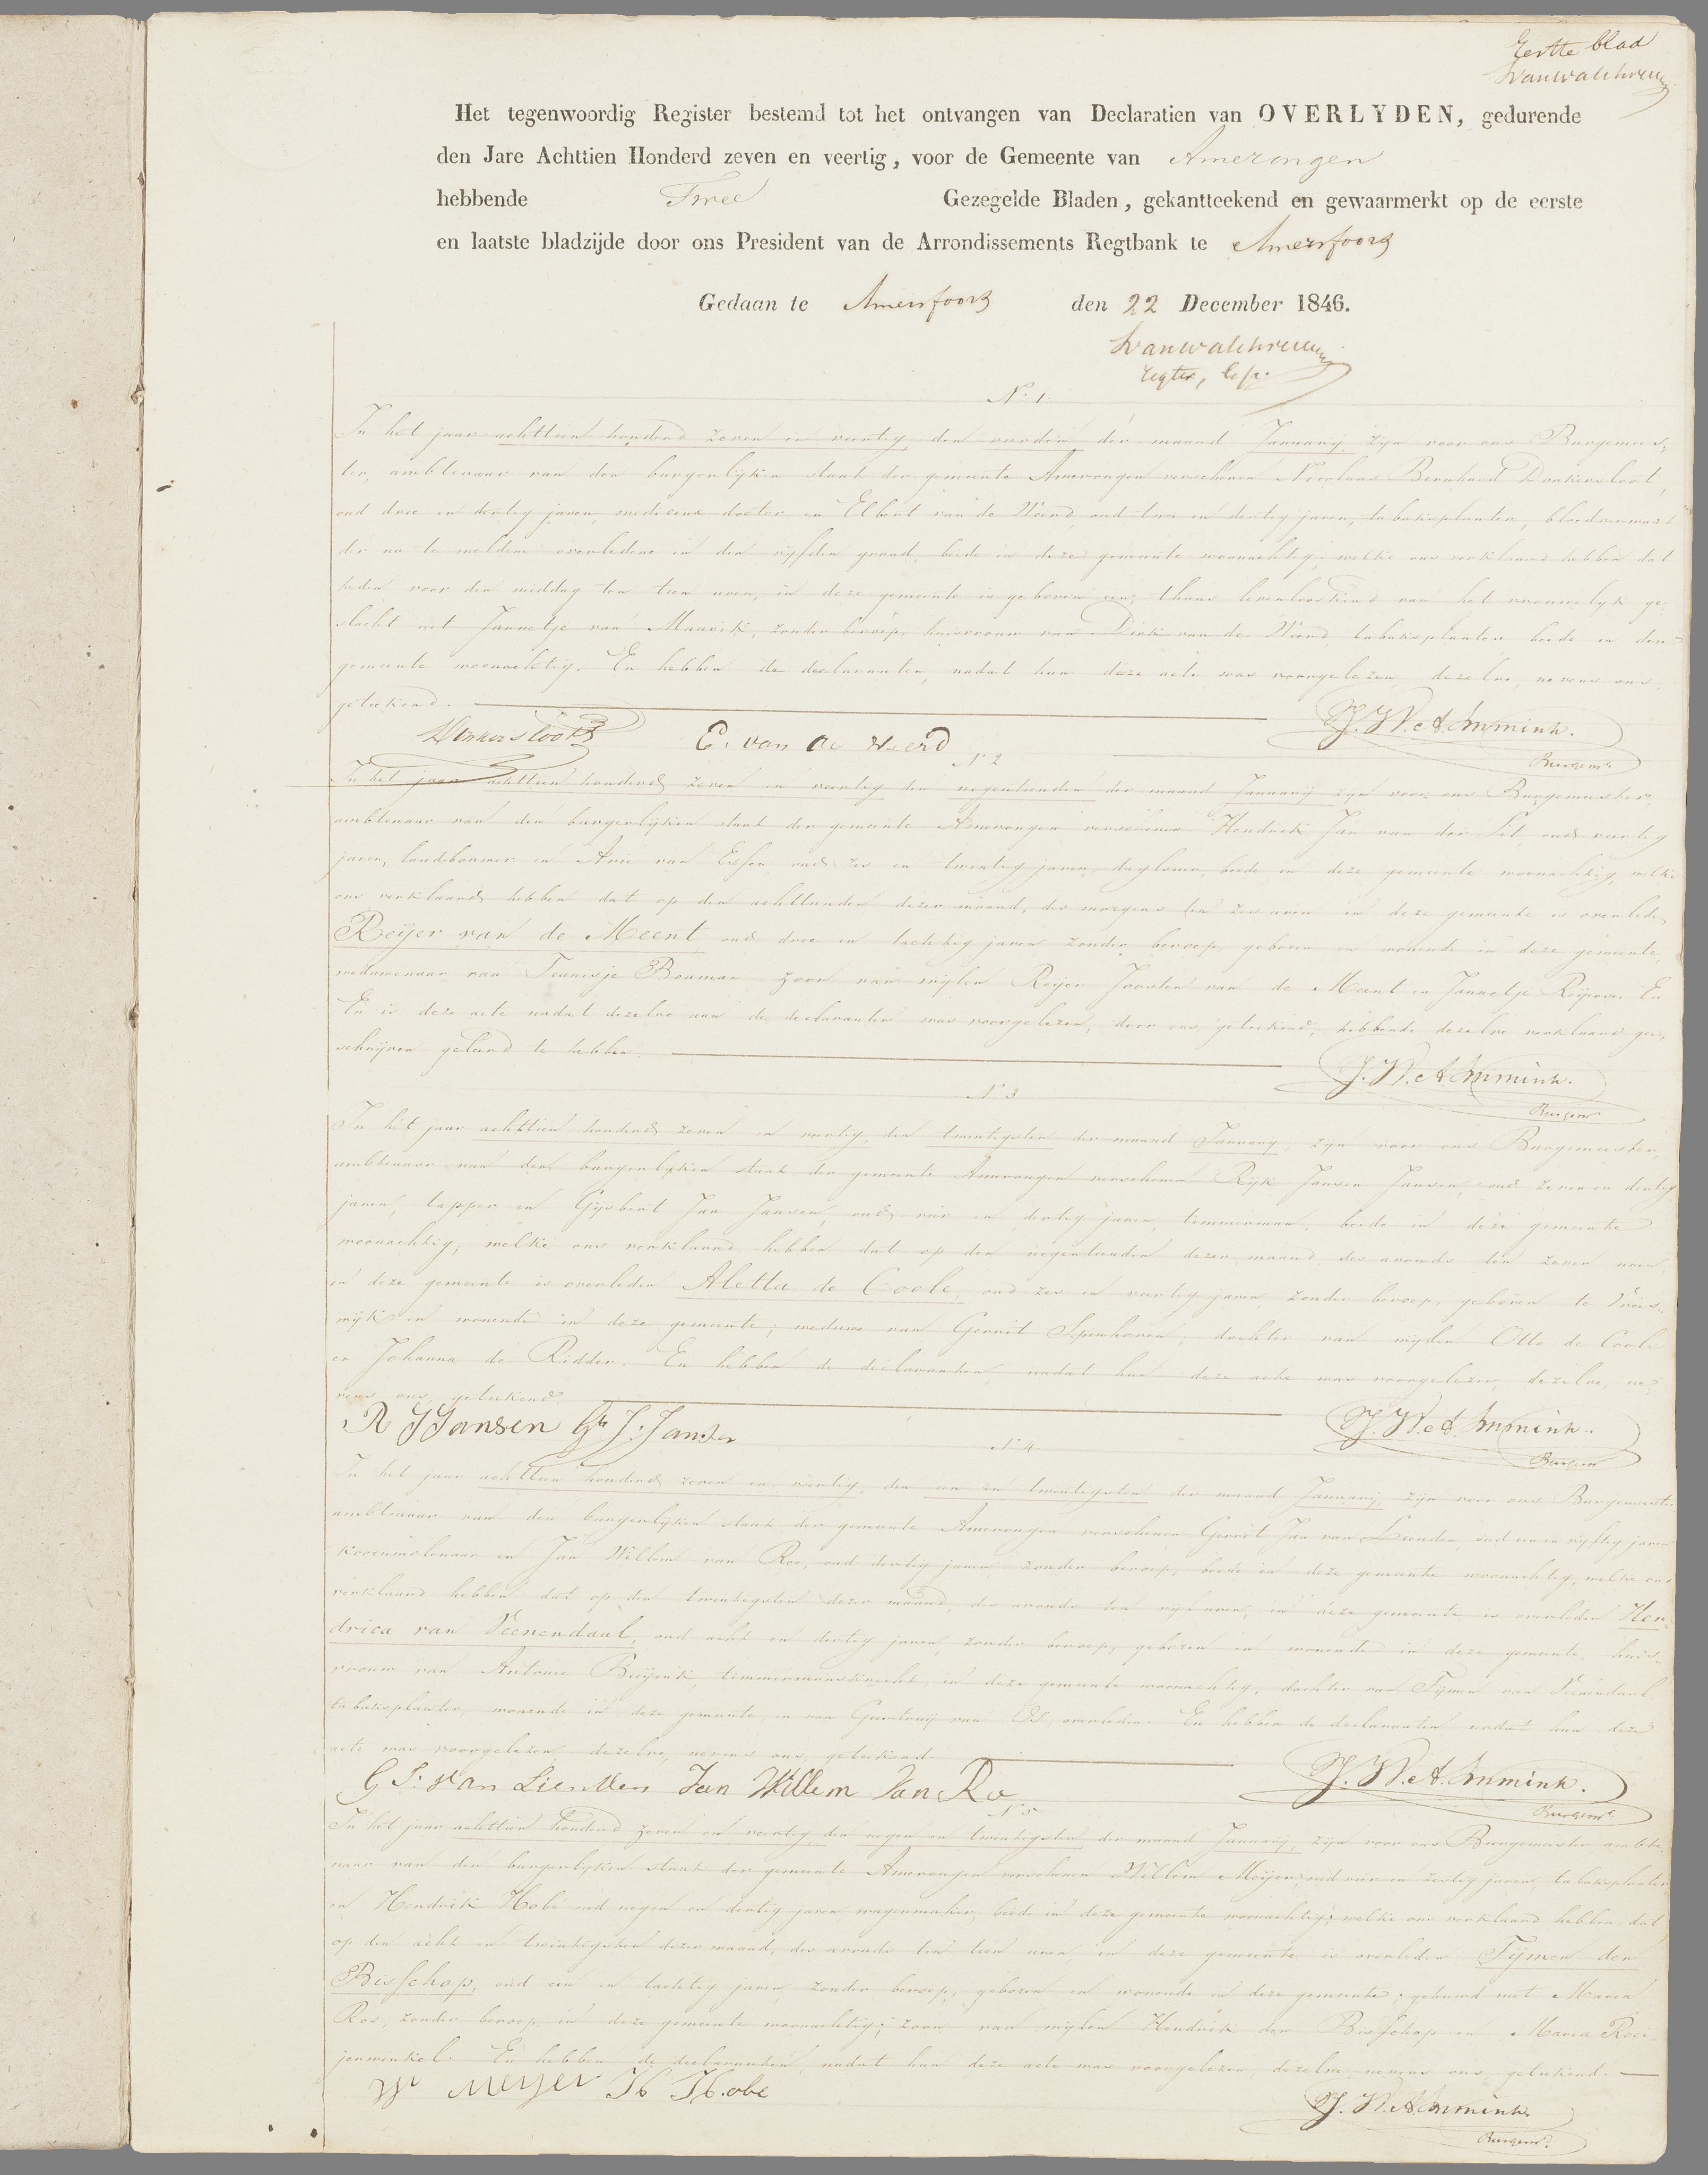 Eerste blad
Het tegenwoordig Register bestemd tot het ontvangen van Declaratien van OVERLYDEN, gedurende
den Jare Achttien Honderd zeven en veertig, voor de Gemeente van Amerongen
hebbende Twee Gezegelde Bladen, gekantteekend en gewaarmerkt op de eerste
en laatste bladzijde door ons President van de Arrondissements Regtbank te Amersfoort
Gedaan te Amersfoort den 22 December 1846.
N. 1.
In het jaar achttien honderd zeven en veertig, den vierden der maand Januarij zijn voor ons Burgemees-
ter, ambtenaar van den burgerlijken staat der gemeente Amerongen verschenen Nicolaas Bernhard Donkersloot,
oud drie en dertig jaren, medicinae doctor en Elbert van de Weerd, oud twee en dertig jaren, tabaksplanter, bloedverwant
der na te melden overledene in den vijfden graad, beide in deze gemeente woonachtig, welke ons verklaard hebben dat
heden voor den middag ten tien uren, in deze gemeente is geboren een, thans levenloos kind van het vrouwelijk ge-
slacht uit Jannetje van Maurik, zonder beroep, huisvrouw van Dirk van de Weerd, tabaksplanter beide in deze
gemeente woonachtig. En hebben de declaranten, nadat hun deze acte was voorgelezen, dezelve, nevens ons,
geteekend.
Donkersloot E. van de Weerd J. W. A. Immink.
Burgemr.
N. 2
In het jaar achttien honderd zeven en veertig den negentienden der maand Januarij zijn voor ons Burgemeester,
ambtenaar van den burgerlijken staat der gemeente Amerongen verschenen Hendrik Jan van der Lit, oud veertig
jaren, landbouwer en Arie van Essen, oud zes en twintig jaren, daglooner, beide in deze gemeente woonachtig, welke
ons verklaard hebben dat op den achttienden dezer maand, des morgens ten zes uren in deze gemeente is overleden
Reijer van de Meent oud drie en tachtig jaren zonder beroep, geboren en wonende in deze gemeente,
weduwenaar van Teunisje Bouman, zoon van wijlen Reijer Joosten van de Meent en Jannetje Reijers. En
En is deze acte nadat dezelve aan de declaranten was voorgelezen, door ons geteekend, hebbende dezelve verklaard geen
schrijven geleerd te hebben.
J. W. A. Immink.
Burgemr.
N. 3
In het jaar achttien honderd zeven en veertig, den twintigsten der maand Januarij, zijn voor ons Burgemeester,
ambtenaar van den burgerlijken staat der gemeente Amerongen verschenen Rijk Jansen Jansen, oud zeven en dertig
jaren, tapper en Gijsbert Jan Jansen, oud vier en dertig jaren, timmerman, beide in deze gemeente
woonachtig, welke ons verklaard hebben dat op den negentienden dezer maand des avonds ten zeven uren,
in deze gemeente is overleden Aletta de Coole, oud zes en veertig jaren zonder beroep, geboren te Vrees-
wijk en wonende in deze gemeente; weduwe van Gerrit Spenhoven, dochter van wijlen Otto de Coole
en Johanna de Ridder. En hebben de declaranten, nadat hun deze acte was voorgelezen, dezelve, ne-
vens ons, geteekend.
R J Jansen Gt J. Jansen J. W. A. Immink.
Burgemr
N. 4
In het jaar achttien honderd zeven en veertig, den een en twintigsten der maand Januarij, zijn voor ons Burgemeester
ambtenaar van den burgerlijken staat der gemeente Amerongen verschenen Gerrit Jan van Lienden, oud een en vijftig jaren
korenmolenaar en Jan Willem van Roo, oud dertig jaren zonder beroep, beide in deze gemeente woonachtig, welke ons
verklaard hebben dat op den twintigsten dezer maand, des avonds ten vijf uren, in deze gemeente is overleden Hen-
drica van Veenendaal, oud acht en dertig jaren, zonder beroep, geboren en wonende in deze gemeente, huis-
vrouw van Antonie Buijenk, timmermansknecht, in deze gemeente woonachtig, dochter van Tijmen van Veenendaal
tabaksplanter, wonende in deze gemeente, en van Geertruij van Os, overleden. En hebben de declaranten nadat hun deze
acte was voorgelezen, dezelve, nevens ons, geteekend.
G J. van Lienden Jan Willem van Ro J. W. A. Immink.
Burgemr.
N. 5
In het jaar achttien honderd zeven en veertig, den negen en twintigsten der maand Januarij, zijn voor ons Burgemeester ambte-
naar van den burgerlijken staat der gemeente Amerongen verschenen Willem Meijer, oud vier en zestig jaren, tabaksplanter,
en Hendrik Hobe oud negen en dertig jaren wagenmaker, beide in deze gemeente woonachtig; welke ons verklaard hebben dat
op den acht en twintigsten dezer maand, des avonds ten tien uren, in deze gemeente is overleden Tijmen den
Bisschop, oud een en tachtig jaren, zonder beroep, geboren en wonende in deze gemeente; gehuwd met Maria
Ros, zonder beroep in deze gemeente woonachtig; zoon van wijlen Hendrik den Bisschop en Maria Roei
jenwinkel. En hebben de declaranten, nadat hun deze acte was voorgelezen dezelve nevens ons geteekend.
W Meyer H Hobe J. W. A. Immink.
Burgemr.